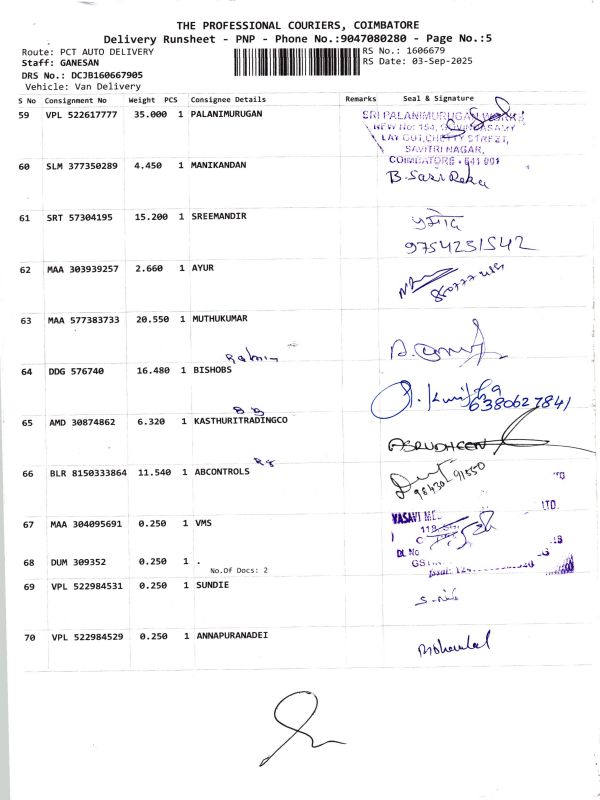 THE PROFESSIONAL COURIERS, COIMBATORE
Delivery Runsheet - PNP - Phone No.:9047080280 - Page No.:5
Route: PCT AUTO DELIVERY RS No.: 1606679
Staff: GANESAN RS Date: 03-Sep-2025
DRS No.: DCJB160667905
Vehicle: Van Delivery
S No Consignment No Weight PCS Consignee Details Remarks Seal & Signature
59 VPL 522617777 35.000 1 PALANIMURUGAN
SRI PALANIMURUGAN WORKS
NEW No: 154, GOVINDASAMY
LAY OUT, CHETTY STREET,
SAVITRI NAGAR,
COIMBATORE - 641 001
60 SLM 377350289 4.450 1 MANIKANDAN
B. Sasi Reka
61 SRT 57304195 15.200 1 SREEMANDIR
9754231542
62 MAA 303939257 2.660 1 AYUR
63 MAA 577383733 20.550 1 MUTHUKUMAR
64 DDG 576740 16.480 1 BISHOBS
6380627841
65 AMD 30874862 6.320 1 KASTHURITRADINGCO
ASRUDHEEN
66 BLR 8150333864 11.540 1 ABCONTROLS
98430-91550
67 MAA 304095691 0.250 1 VMS
VASAVI
LTD.
68 DUM 309352 0.250 1 .
No.Of Docs: 2
DL No
69 VPL 522984531 0.250 1 SUNDIE
70 VPL 522984529 0.250 1 ANNAPURANADEI
Mohanlal